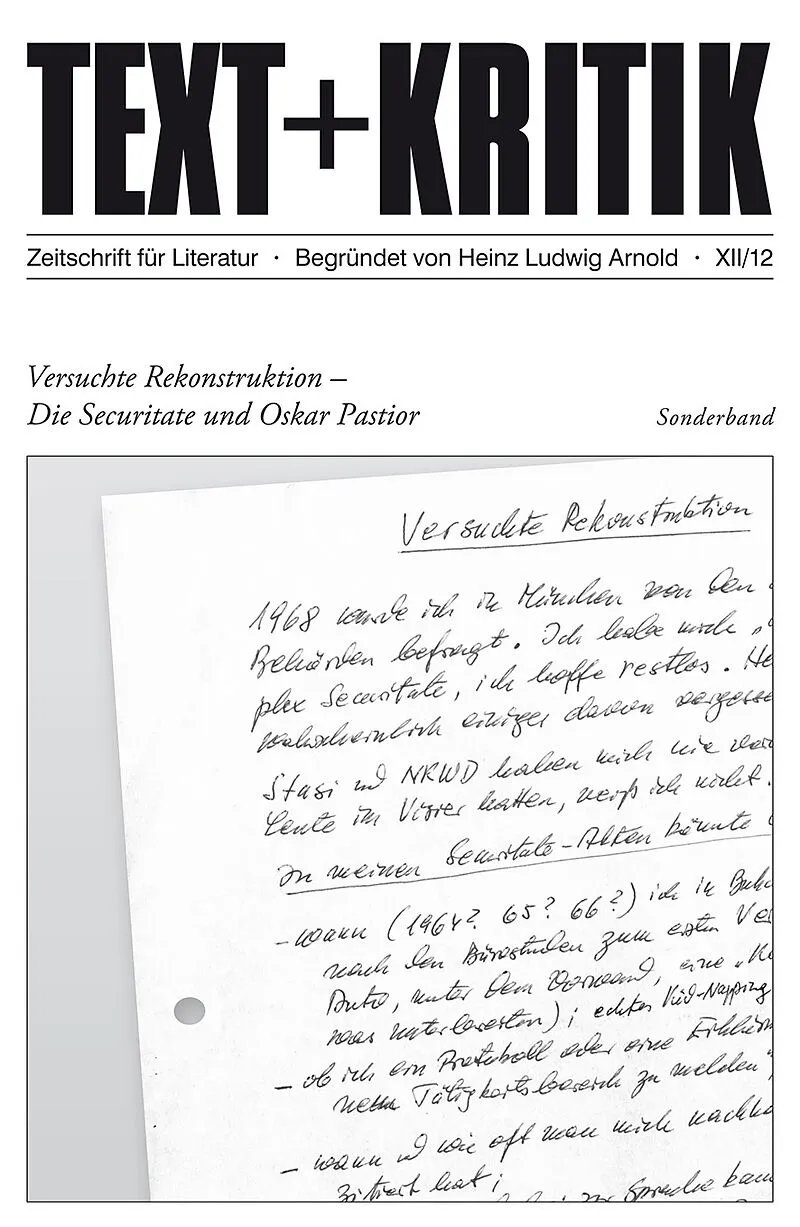 TEXT+KRITIK
Zeitschrift für Literatur · Begründet von Heinz Ludwig Arnold · XII/12
Versuchte Rekonstruktion –
Die Securitate und Oskar Pastior
Sonderband
Versuchte Rekonstruktion
1968 wurde ich in München von den
Behörden befragt. Ich habe mich „
plex Securitate, ich hoffe restlos. He
wahrscheinlich einiges davon vergesse
Stasi und NKWD haben mich nie
Leute im Visier hatten, weiß ich nicht.
In meinen Securitate-Akten könnte
– wann (1964? 65? 66?) ich in Buka
nach den Bürostunden zum ersten Ve
Auto, unter dem Vorwand, eine „K
was unterbreiten); echtes Kid-Napping
– ob ich ein Protokoll oder eine Erklär
nem Tätigkeitsbereich zu melden“,
– wann und wie oft man mich
zitiert hat;
zur Sprache kam